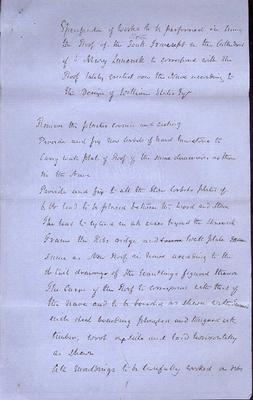 Specification of Works to be performed in
the Roof of the South Transept in the Cathedral
of St Mary Limerick to correspond with the
Roof lately erected over the Nave according to
the Design of William Slater Esqr
Remove the plaster cornice and ceiling
Provide and fix new corbels of hard limestone to
Carry wall plate of Roof of the same dimensions as those
in the Nave.
Provide and fix to all the Stone Corbels plates of
lead to be placed between the wood and Stone
The lead to extend in all cases beyond the
Frame the Ribs ridge and wall plate
Same as New Roof in nave according to the
detail drawings of the Scantlings figured thereon
The Curve of the Roof to correspond with that of
the Nave and to be boarded as shewn with
inch deal boarding ploughed and tongued
timber, and laid horizontally
as Shewn
All Mouldings to be carefully worked on ribs